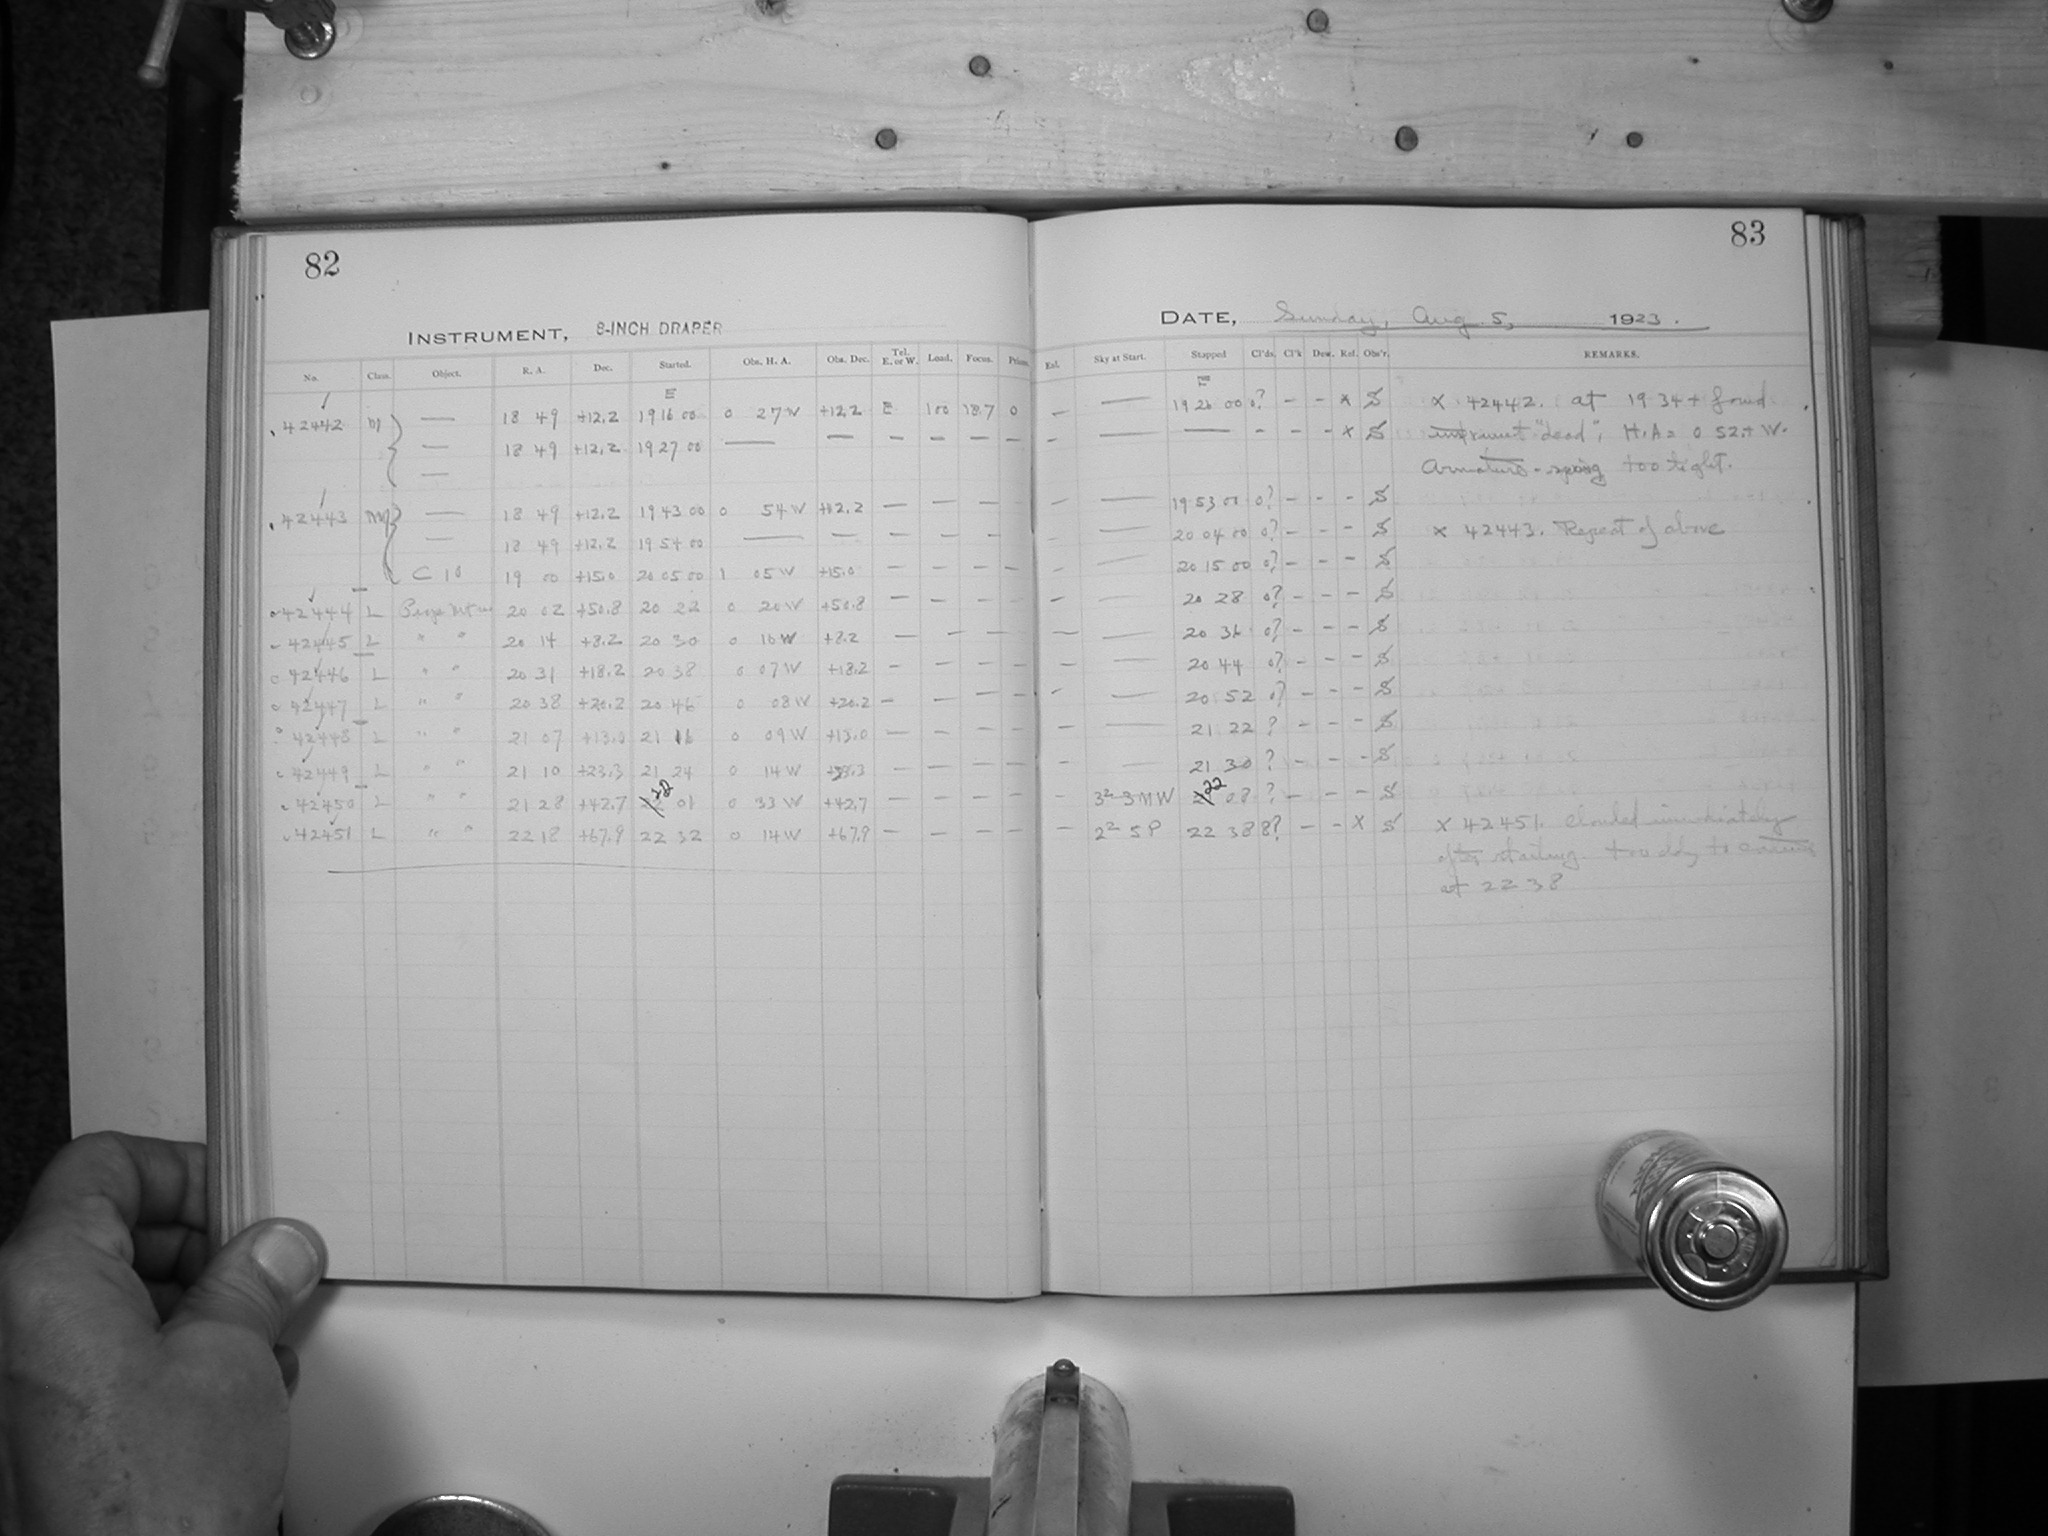 82
INSTRUMENT, 8-INCH DRAPER
No. Class. Object. R. A. Dec. Started. Obs. H. A. Obs. Dec. Tel. E. or W. Load. Focus. Prism
E
42442 M — 18 49 +12.2 19 16 00 0 27 W +12.2 E 100 18.7 0
— 18 49 +12.2 19 27 00 — — — — — —
—
42443 M — 18 49 +12.2 19 43 00 0 54 W +12.2 — — — —
— 18 49 +12.2 19 54 00 — — — — — —
C 10 19 00 +15.0 20 05 00 1 05 W +15.0 — — — —
42444 L 20 02 +50.8 20 22 0 20 W +50.8 — — — —
42445 L " " 20 14 +8.2 20 30 0 16 W +8.2 — — — —
42446 L " " 20 31 +18.2 20 38 0 07 W +18.2 — — — —
42447 L " " 20 38 +20.2 20 46 0 08 W +20.2 — — — —
42448 L " " 21 07 +13.0 21 16 0 09 W +13.0 — — — —
42449 L " " 21 10 +23.3 21 24 0 14 W +23.3 — — — —
42450 L " " 21 28 +42.7 01 0 33 W +42.7 — — — —
42451 L " " 22 18 +67.9 22 32 0 14 W +67.9 — — — —
83
DATE, Sunday, Aug. 5, 1923.
Exl. Sky at Start. Stopped Cl'ds. Cl'k Dew. Rel. Obs'r. REMARKS.
E
— — 19 26 00 0? — — x S x 42442. at 19 34+ found
— — — — — — x S instrument "dead"; H.A = 0 52+ W.
Armature-spring too tight.
— — 19 53 00 0? — — — S
— — 20 04 00 0? — — — S x 42443. Repeat of above
— — 20 15 00 0? — — — S
— — 20 28 0? — — — S
— — 20 36 0? — — — S
— — 20 44 0? — — — S
— — 20 52 0? — — — S
— — 21 22 ? — — — S
— — 21 30 ? — — — S
— 22 08 ? — — — S
— 22 38 8? — — x S x 42451. Clouded immediately
after starting. too cldy to continue
at 22 38